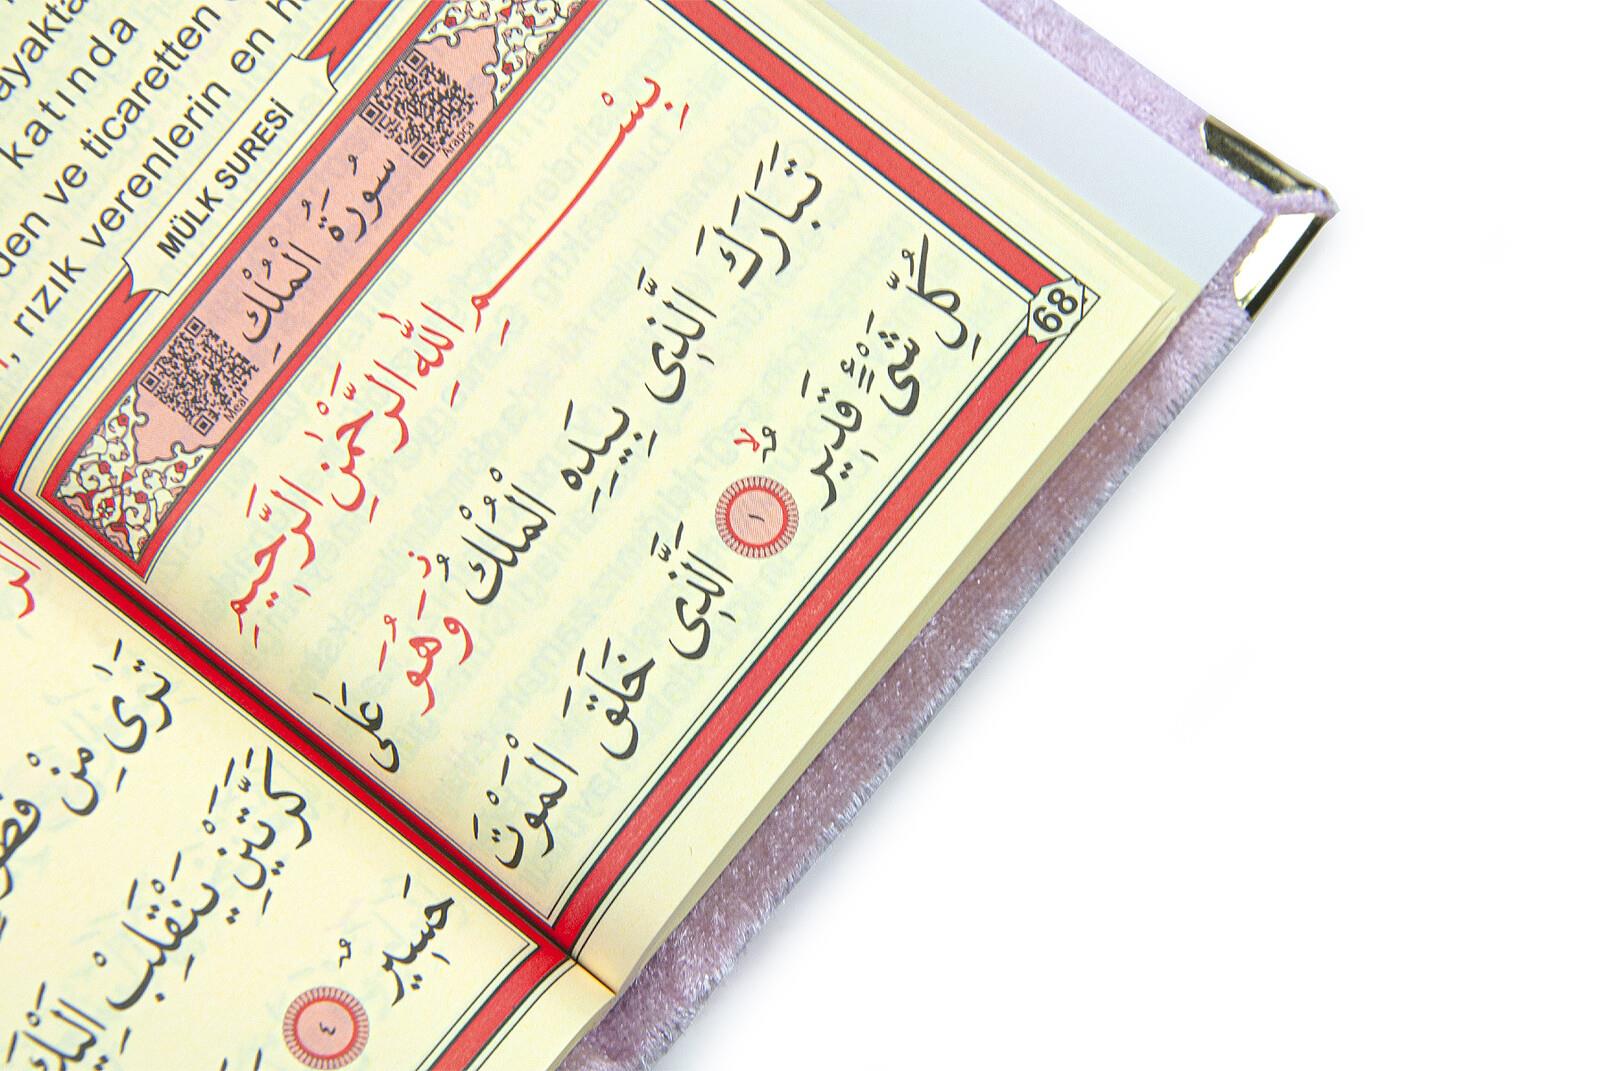 ayakta
katında
den ve ticaretten
, rızık verenlerin en
MÜLK SURESİ
سُورَةُ الْمُلْكِ
Arapça
Meal
بِسْمِ اللّٰهِ الرَّحْمٰنِ الرَّحٖيمِ
تَبَارَكَ الَّذٖى بِيَدِهِ الْمُلْكُ وَهُوَ عَلٰى
كُلِّ شَىْءٍ قَدٖيرٌ ١ الَّذٖى خَلَقَ الْمَوْتَ
68
تَرٰى مِنْ
كَرَّتَيْنِ يَنْقَلِبْ اِلَيْكَ
حَسٖيرٌ ٤